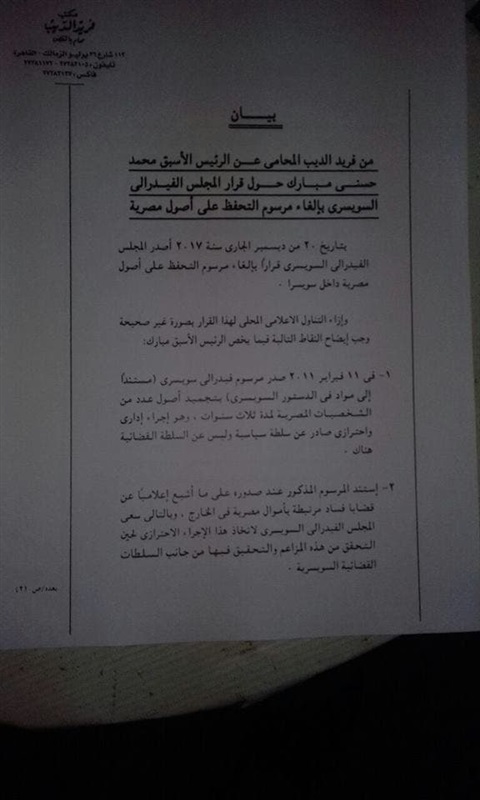 مكتب
فريد الديب
محام بالنقض
١١٢ شارع ٢٦ يوليو الزمالك - القاهرة
تليفون :
فاكس :
بيـــــان
من فريد الديب المحامى عــن الرئيس الأسبق محمد
حسنى مبـارك حــول قرار المجلس الفيـدرالى
السويسرى بإلغاء مرسوم التحفظ على أصول مصرية
بتاريخ ٢٠ من ديسمبر الجارى سنة ٢٠١٧ أصدر المجلس
الفيدرالى السويسرى قراراً بإلغاء مرسوم التحفظ على أصول
مصرية داخل سويسرا .
وإزاء التناول الاعلامى المحلى لهذا القرار بصورة غير صحيحة
وجب إيضاح النقاط التالية فيما يخص الرئيس الأسبق مبارك:
١- فى ١١ فبراير ٢٠١١ صدر مرسوم فيدرالى سويسرى (مستنداً
إلى مواد فى الدستور السويسرى) بتجميد أصول عدد من
الشخصيات المصرية لمدة ثلاث سنوات ، وهو إجراء إدارى
واحترازى صادر عن سلطة سياسية وليس عن السلطة القضائية
هناك .
٢- إستند المرسوم المذكور عند صدوره على ما أشيع إعلامياً عن
قضايا فساد مرتبطة بأموال مصرية فى الخارج ، وبالتالى سعى
المجلس الفيدرالى السويسرى لاتخاذ هذا الإجراء الاحترازى لحين
التحقق من هذه المزاعم والتحقيق فيها من جانب السلطات
القضائية السويسرية .
بعده/ص (٢)